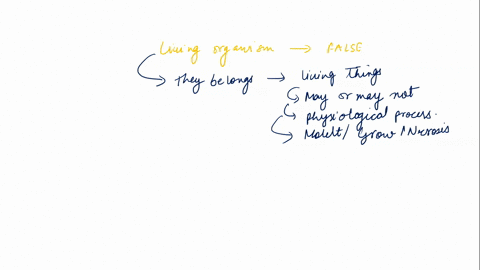 Living organism → FALSE
They belongs → Living Things
May or may not
physiological process.
Grow / Necrosis